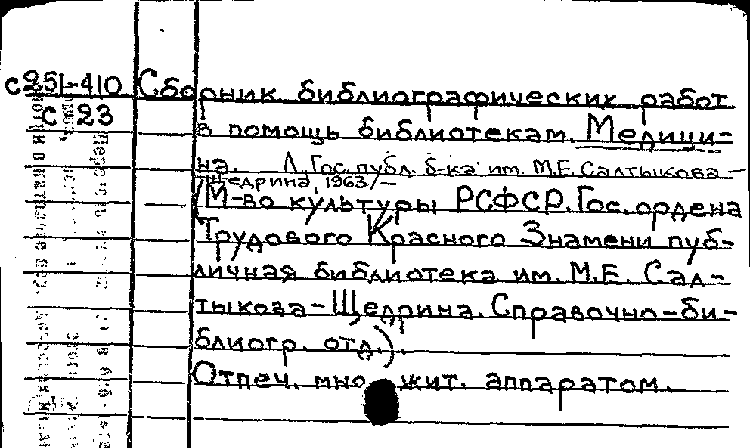 с251-410 Сборник библиографических работ
С 23 в помощь библиотекам. Медици-
на. Л. Гос. публ. б-ка им. М.Е. Салтыкова-
Щедрина, 1963/—
(М-во культуры РСФСР. Гос. ордена
Трудового Красного Знамени пуб-
личная библиотека им. М.Е. Сал-
тыкова-Щедрина. Справочно-би-
блиогр. отд.).
Отпеч. множит. аппаратом.